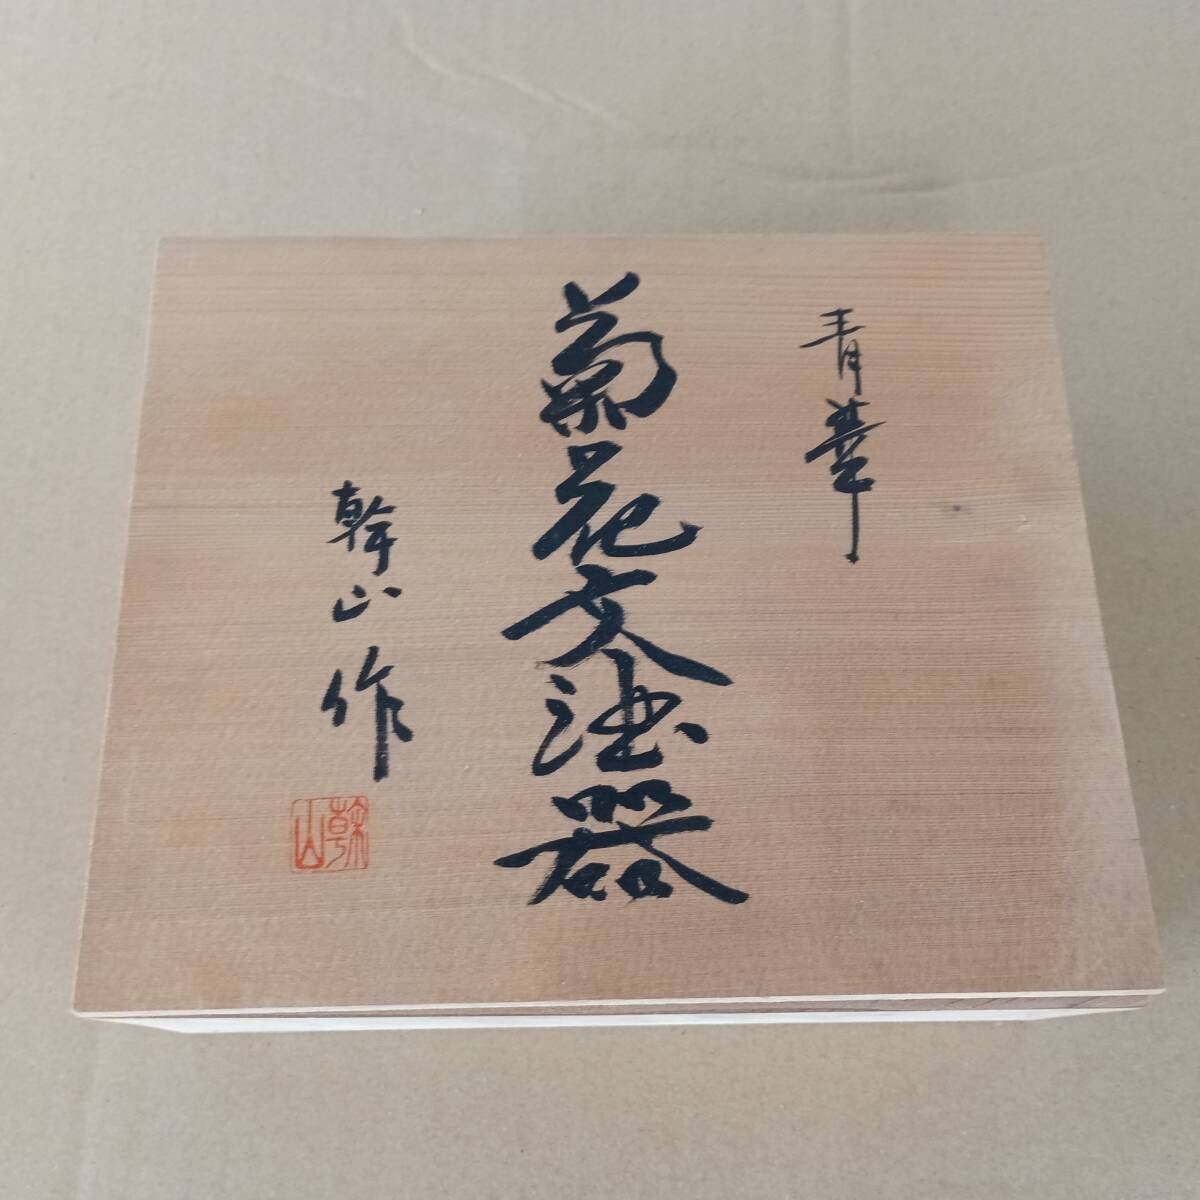 青華
菊花文酒器
幹山作
幹山